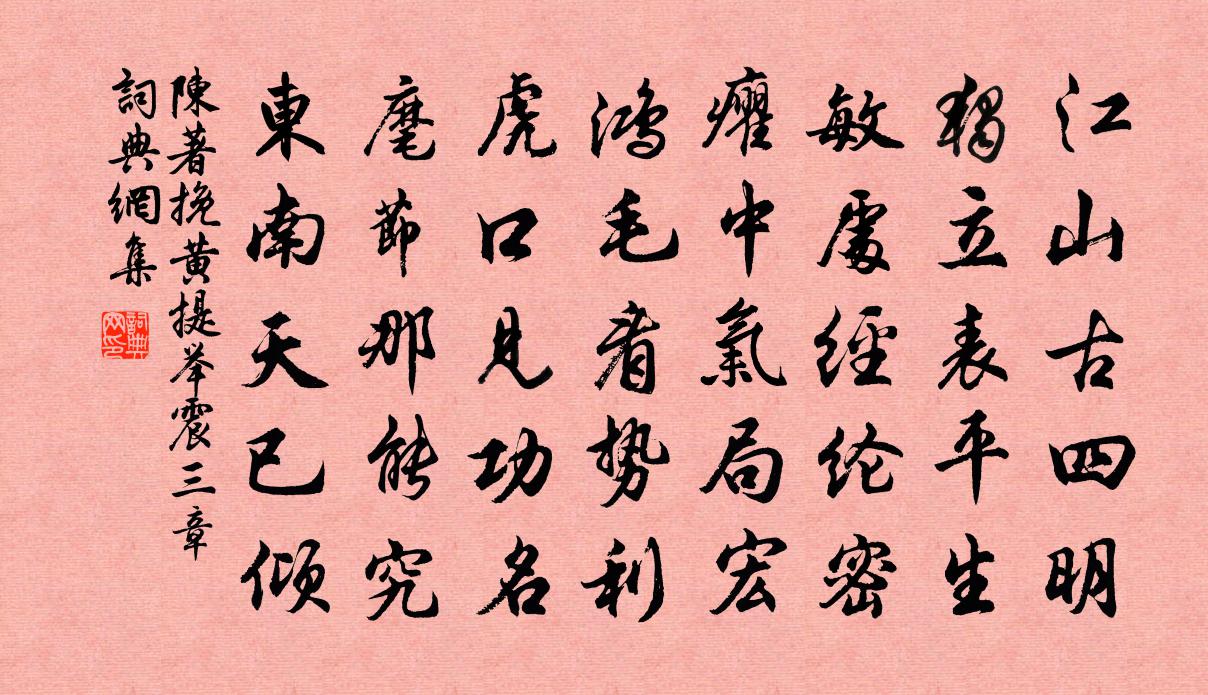 江山古四明
獨立表平生
敏處經纶密
癯中氣局宏
鸿毛看势利
虎口見功名
麾節那能究
東南天已倾
陳著挽黄提举震三章
詞典網集
詞典网印